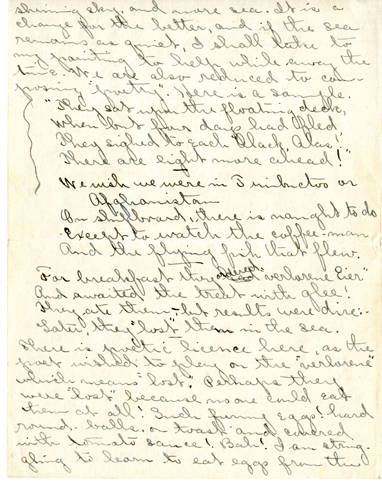 shining sky, and more sea. It is a
change for the better, and if the sea
remains as quiet, I shall take to
my painting to help while away the
time. We are also reduced to com-
posing "poetry". Here is a sample.
"They sat upon the floating deck,
When but four days had fled
They sighed to each "Alack, Alas!
There are eight more ahead!"
We wish we were in Timbuctoo or
Afghanistan
On shipboard, there is naught to do
Except to watch the coffee-man
And the flying fish that flew.
For breakfast they "verlorene Eier"
And awaited the treat with glee!
They ate them - but results were dire:-
Later, they "lost" them in the sea.
There is poetic licence here, as the
poet wished to play on the "verlorene"
which means "lost". Perhaps they
were "lost" because no one could eat
them at all! Such funny eggs! hard
round balls, on toast and covered
with tomato sauce! Bah! I am strug-
gling to learn to eat eggs from the